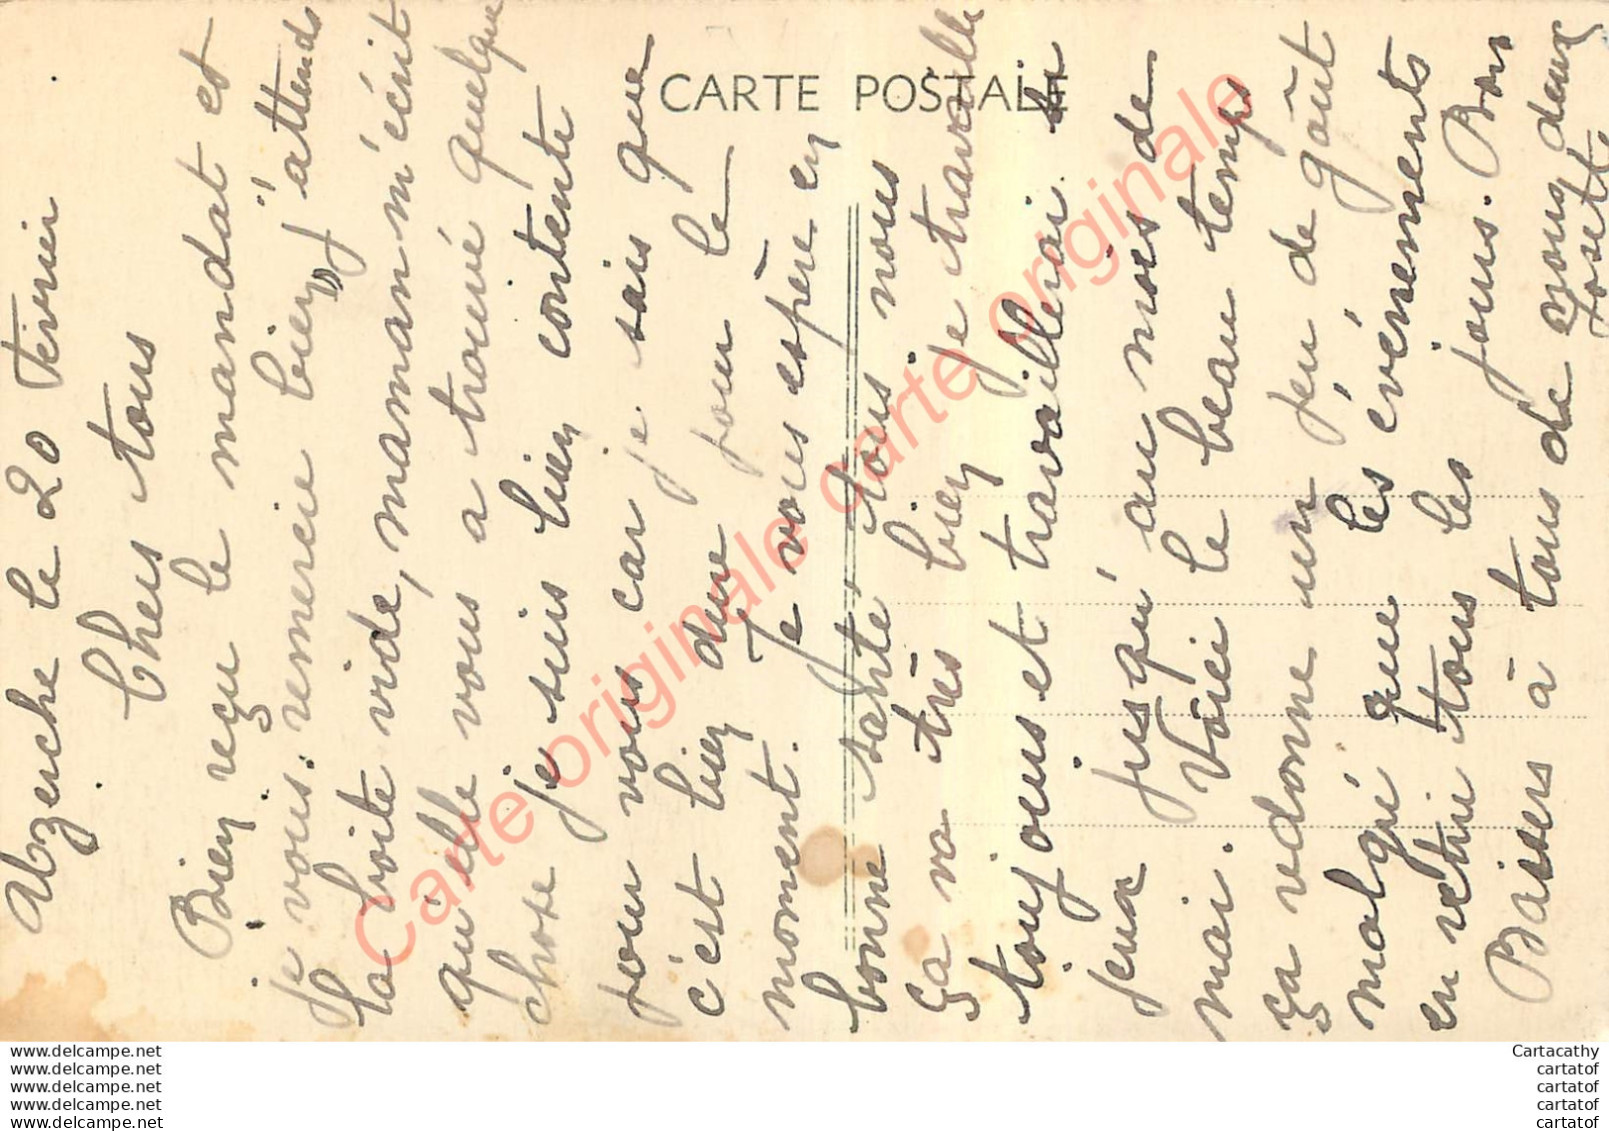 Uzerche le 20 Fevrier
Chers tous
Bien reçu le mandat et
je vous remercie bien, j'attends
la boite vide, maman m'écrit
qu'elle vous a trouvé quelque
chose je suis bien contente
pour vous car je sais que
c'est bien dure pour le
moment. Je vous espère en
bonne santé tous. nous
ça va très bien je travaille
toujours et travaillerai si
jeux jusqu'au mois de
mai. Voici le beau temps
ça redonne un peu de goût
malgré que les événements
en retrie tous les jours. Bon
Baisers à tous de nous deux
Josette
CARTE POSTALE
Carte originale carte originale carte originale
www.delcampe.net
www.delcampe.net
www.delcampe.net
www.delcampe.net
www.delcampe.net
Cartacathy
cartatof
cartatof
cartatof
cartatof